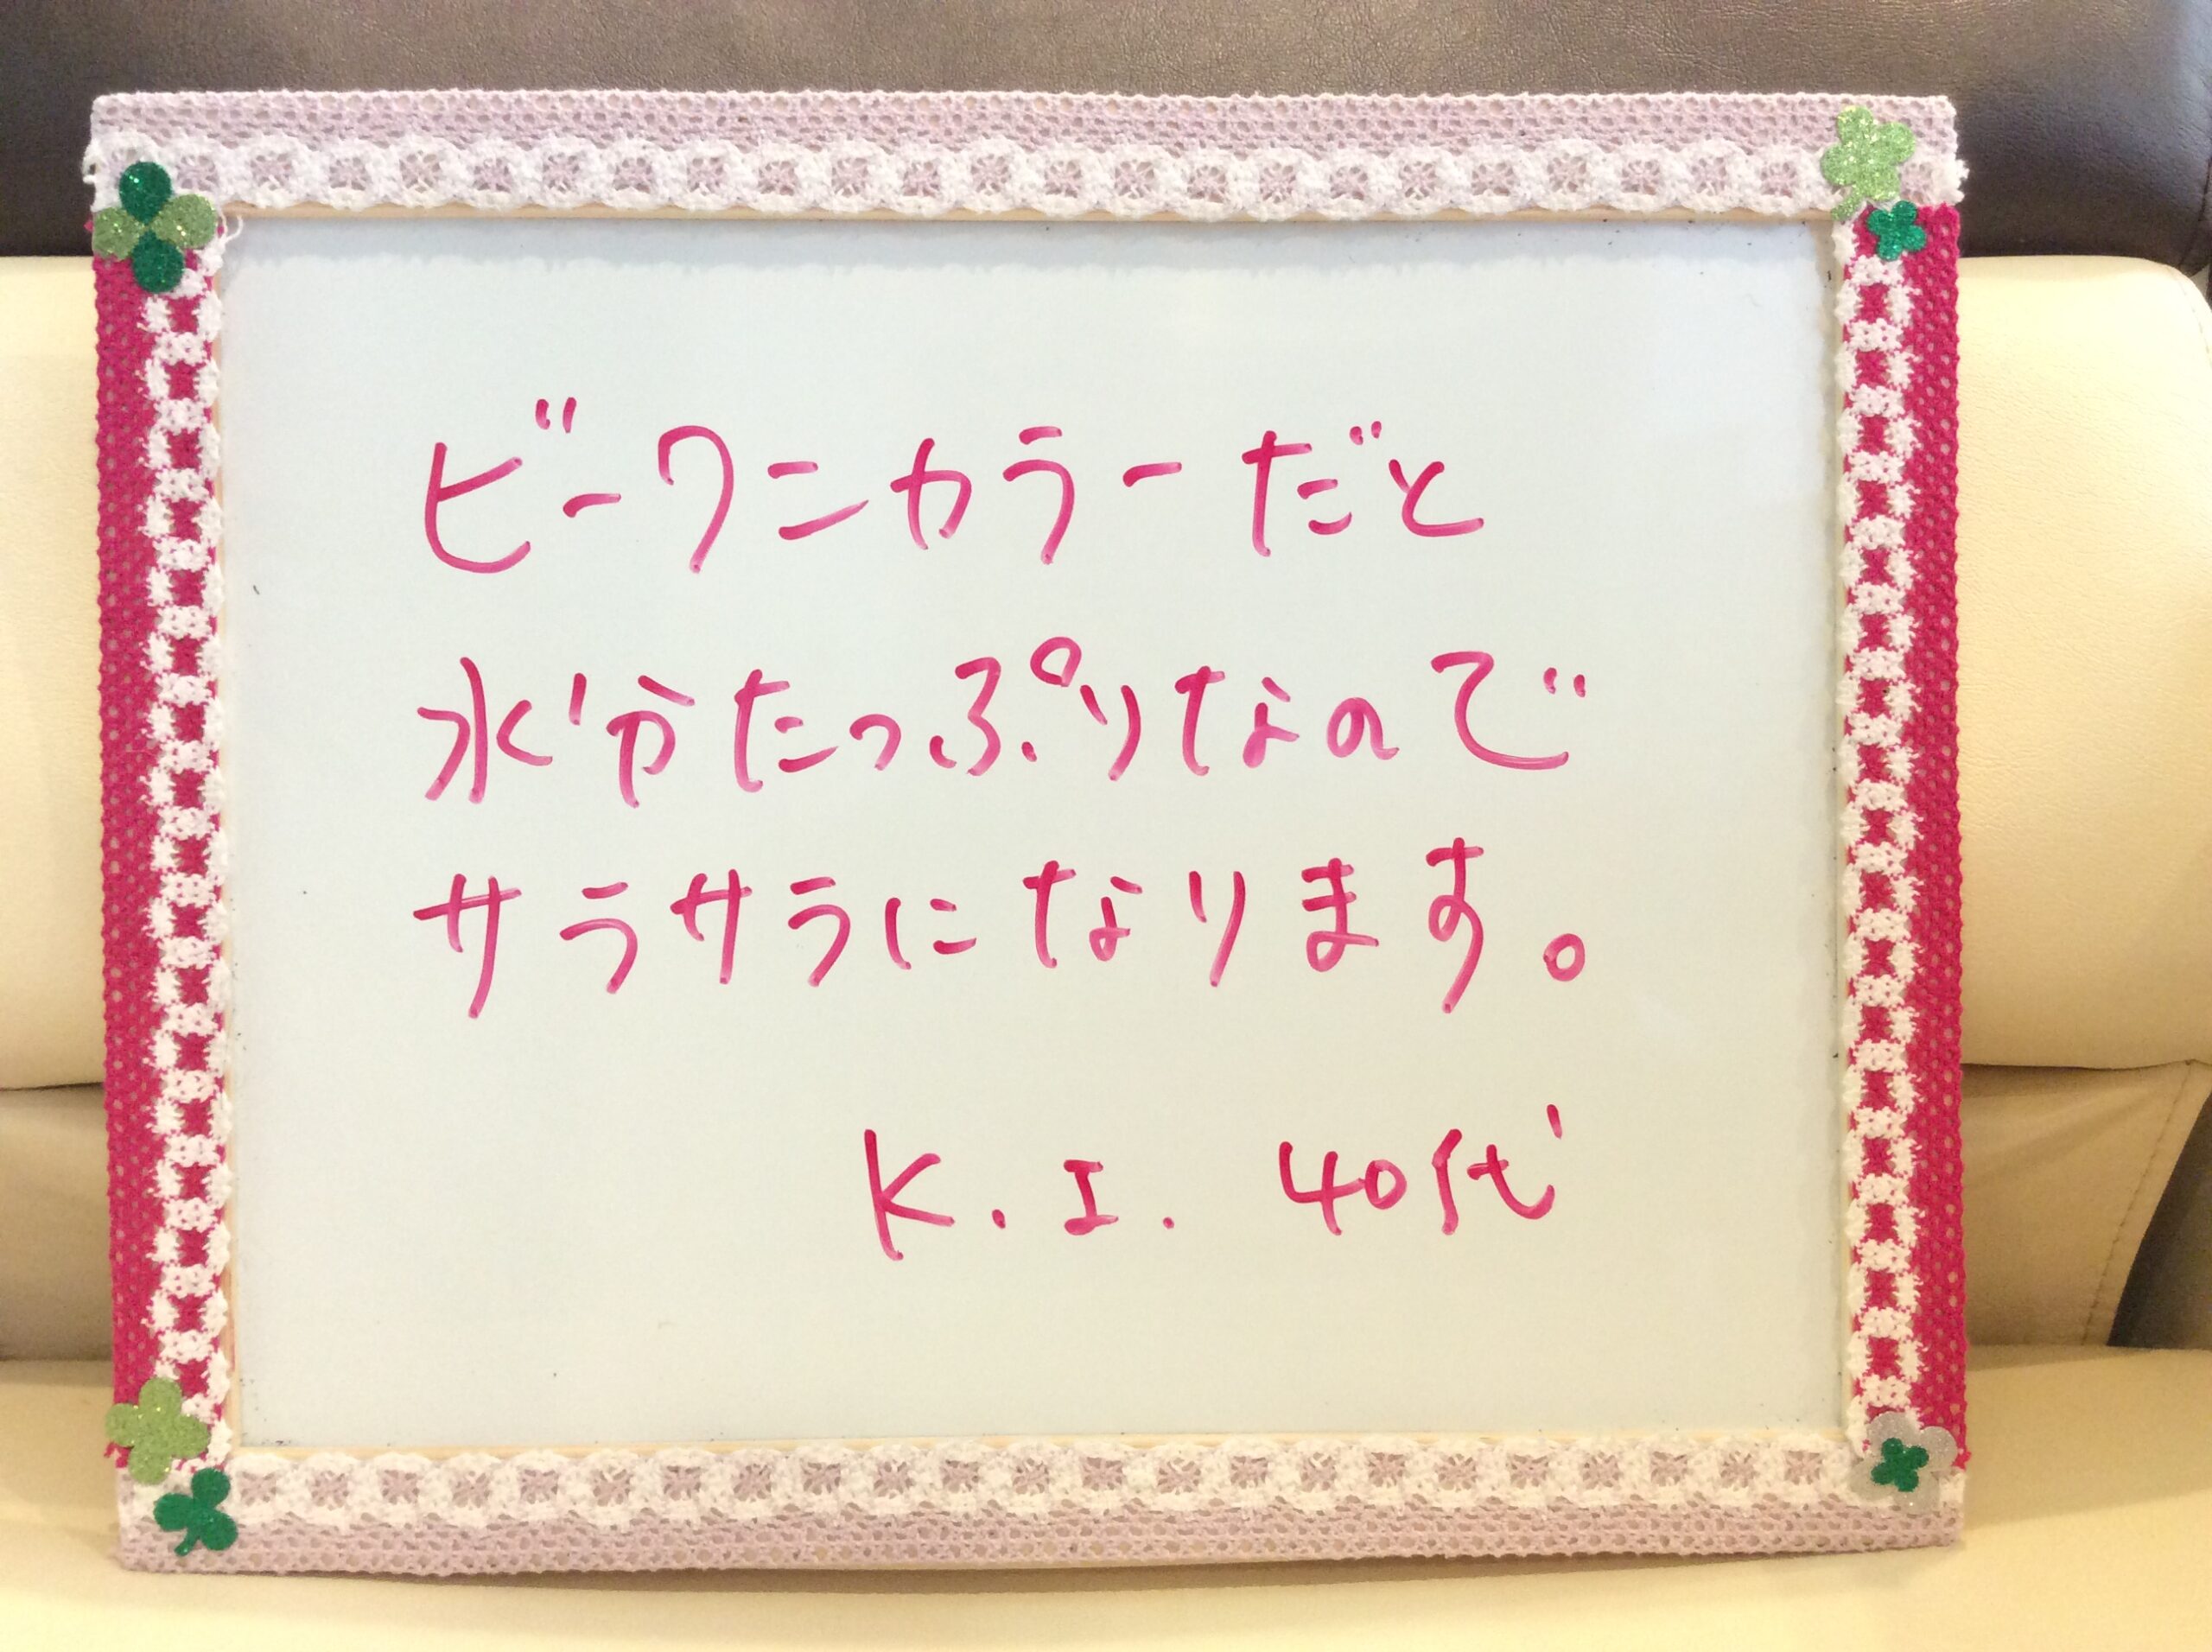 ビーワンカラーだと
水分たっぷりなので
サラサラになります。
K.I. 40代